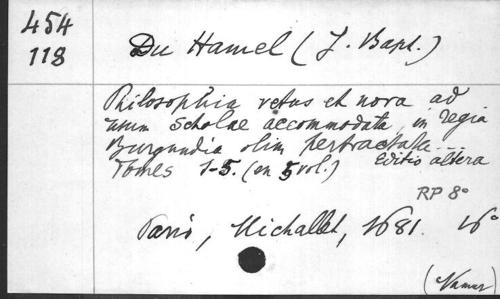 454
118
Du Hamel (J. Bapt.)
Philosophia vetus et nova ad
usum scholae accommodata, in regia
Burgundia olim pertractata...
Tomes 1-5. (en 5 vol.) Editio altera
RP 8°
Paris, Michallet, 1681. 16°
(Namur)